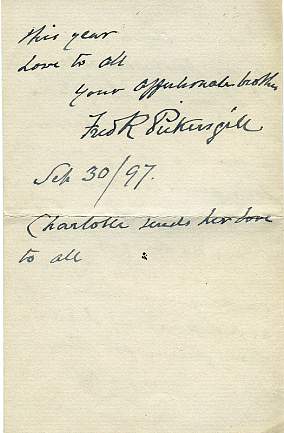 this year
Love to all
Your affectionate brother
Fred R Pickersgill
Sep 30/97.
Charlotte sends her love
to all